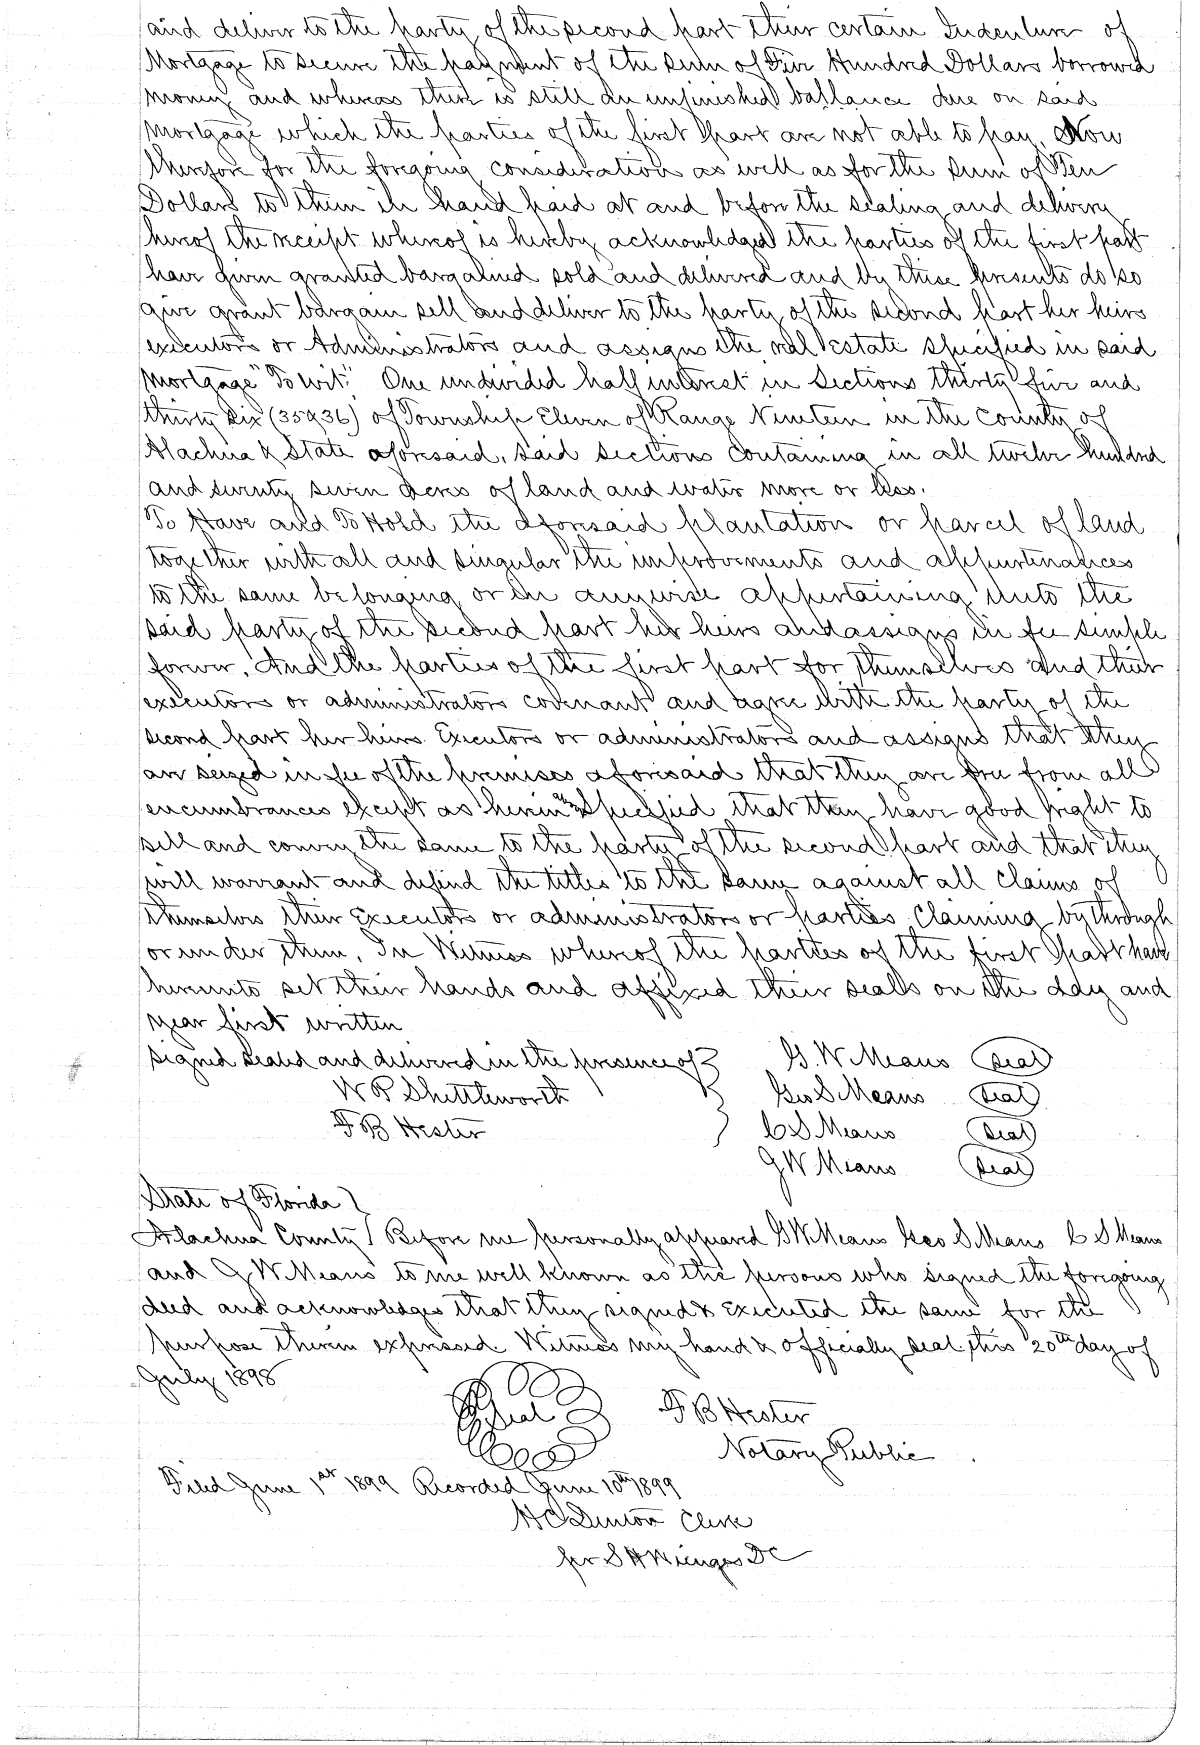 and deliver to the party of the second part their certain Indenture of
Mortgage to secure the payment of the sum of Five Hundred Dollars borrowed
money, and whereas there is still an unfinished ballance due on said
mortgage which the parties of the first part are not able to pay, Now
therefore for the foregoing consideration as well as for the sum of Ten
Dollars to them in hand paid at and before the sealing and delivery
hereof the receipt whereof is hereby acknowledged the parties of the first part
have given granted bargained sold and delivered and by these presents do so
give grant bargain sell and deliver to the party of the second part her heirs
executors or Administrators and assigns the real estate specified in said
mortgage "To wit:" One undivided half interest in Sections thirty five and
thirty six (35&36) of Township Eleven of Range Nineteen in the County of
Alachua & State aforesaid, said sections containing in all twelve hundred
and twenty seven acres of land and water more or less.
To Have and To Hold the aforesaid plantation or parcel of land
together with all and singular the improvements and appurtenances
to the same belonging or in anywise appertaining unto the
said party of the second part her heirs and assigns in fee simple
forever. And the parties of the first part for themselves and their
executors or administrators covenant and agree with the party of the
second part her heirs Executors or administrators and assigns that they
are seized in fee of the premises aforesaid that they are free from all
encumbrances except as herein specified that they have good right to
sell and convey the same to the party of the second part and that they
will warrant and defend the titles to the same against all claims of
themselves their Executors or administrators or parties claiming by through
or under them. In Witness whereof the parties of the first part have
hereunto set their hands and affixed their seals on the day and
year first written
signed sealed and delivered in the presence of } G. W Means (seal)
W R Shuttleworth } Geo S Means (seal)
F B Hester } C S Means (seal)
G W Means (seal)
State of Florida }
Alachua County } Before me personally appeared G W Means Geo S Means C S Means
and G W Means to me well known as the persons who signed the foregoing
deed and acknowledges that they signed & executed the same for the
purpose therein expressed Witness my hand & officially seal this 20th day of
July 1898
Seal F B Hester
Notary Public
Filed June 1st 1899 Recorded June 10th 1899
H C Denton Clerk
per S H Wienges DC